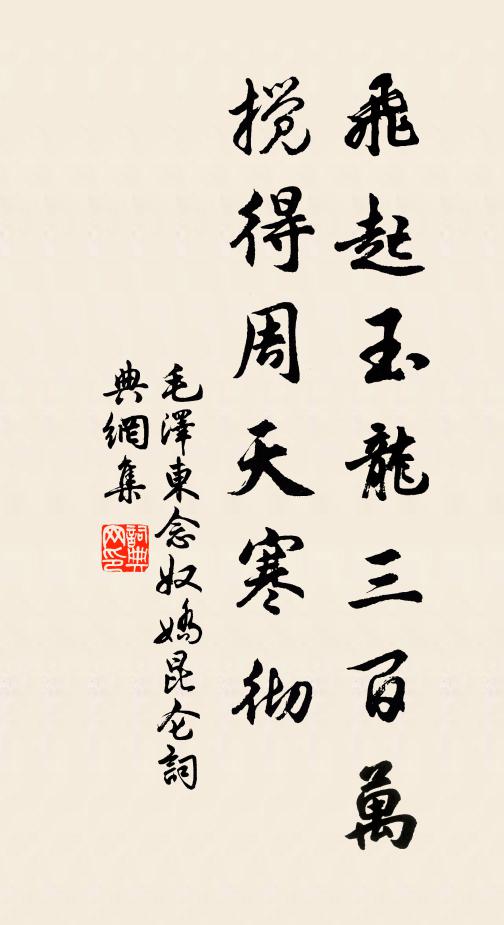 飛起玉龍三百萬
搅得周天寒彻
毛澤東念奴嬌昆仑詞
典網集
詞典
网印